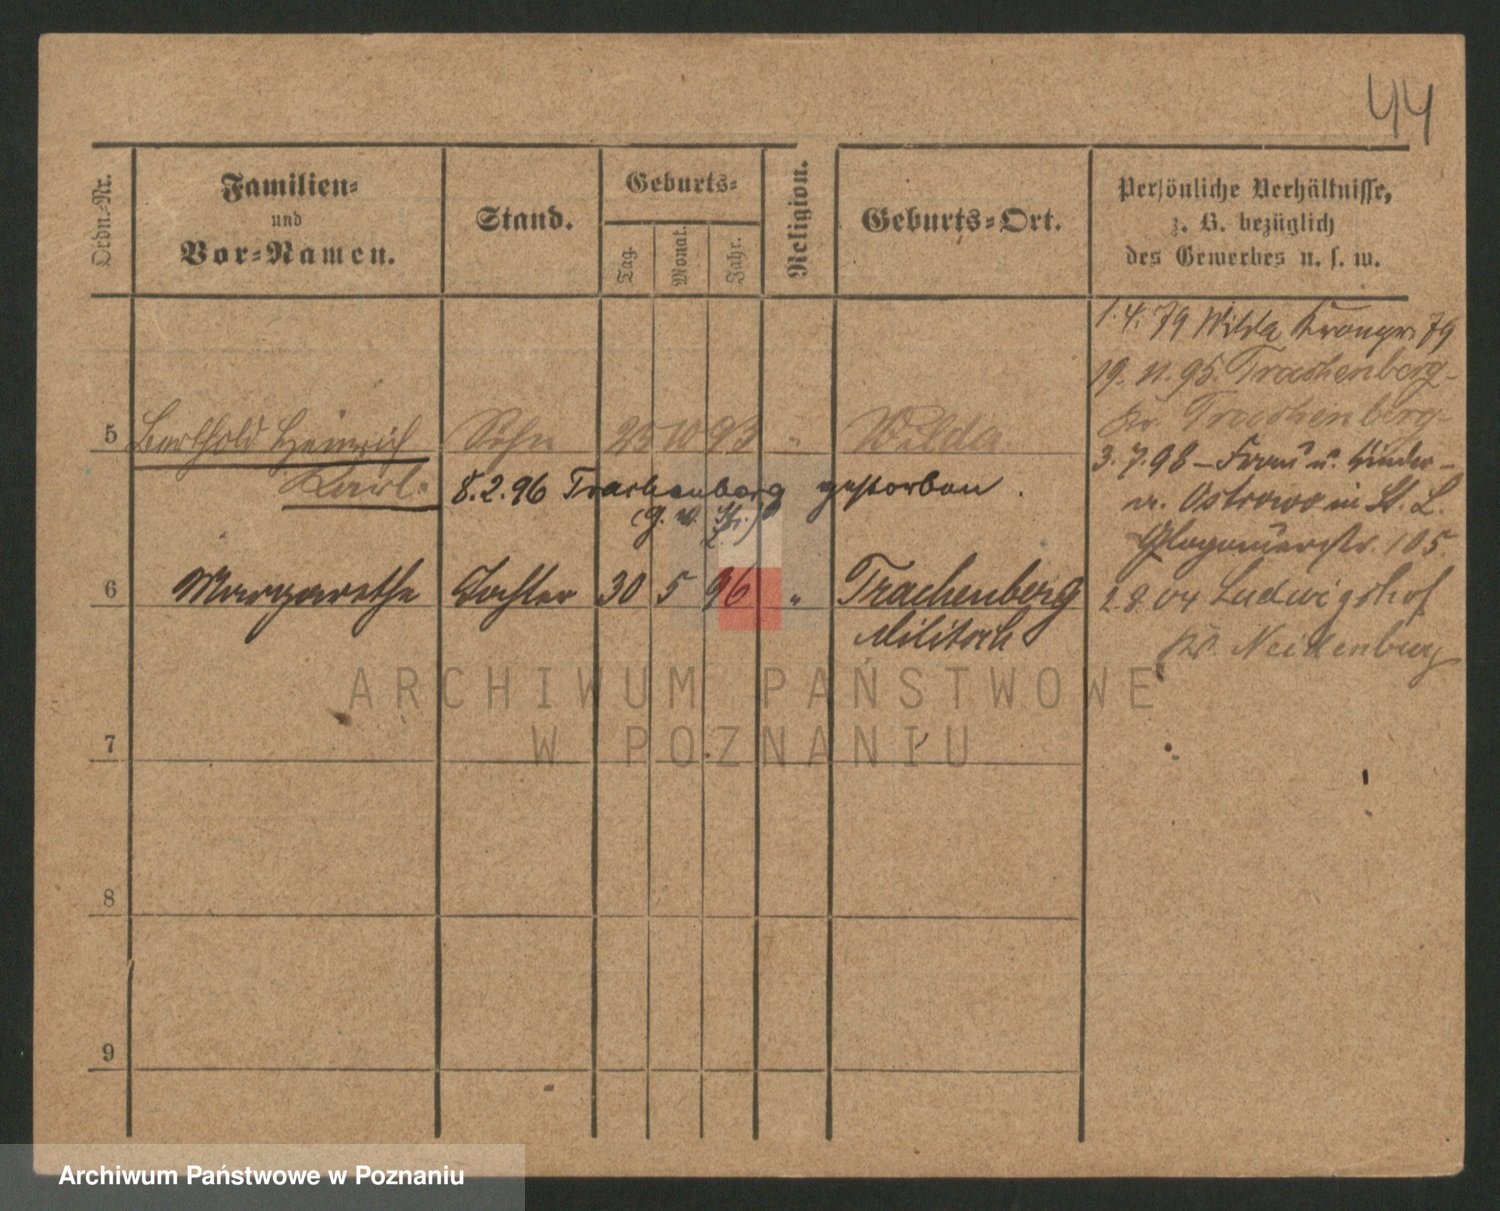 44
Ordn.-Nr.
Familien-
und
Vor-Namen.
Stand.
Geburts-
Tag.
Monat.
Jahr.
Religion.
Geburts-Ort.
Persönliche Verhältnisse,
z. B. bezüglich
des Gewerbes u. s. w.
1. 4. 79 Wilda Kronpr. 79
19. 11. 95. Trachenberg-
Kr. Trachenberg-
5 Berthold Heinrich Sohn 25 10 93 " Wilda
Karl. 8. 2. 96 Trachenberg gestorben.
3. 7. 98 - Frau u. Kinder -
Ostrowo in St. L.
Glogauerstr. 105.
6 Margarethe Tochter 30 5 96 " Trachenberg
Militsch
2. 8. 04 Ludwigshof
Kr. Neidenburg
ARCHIWUM PAŃSTWOWE
W POZNANIU
7
8
9
Archiwum Państwowe w Poznaniu